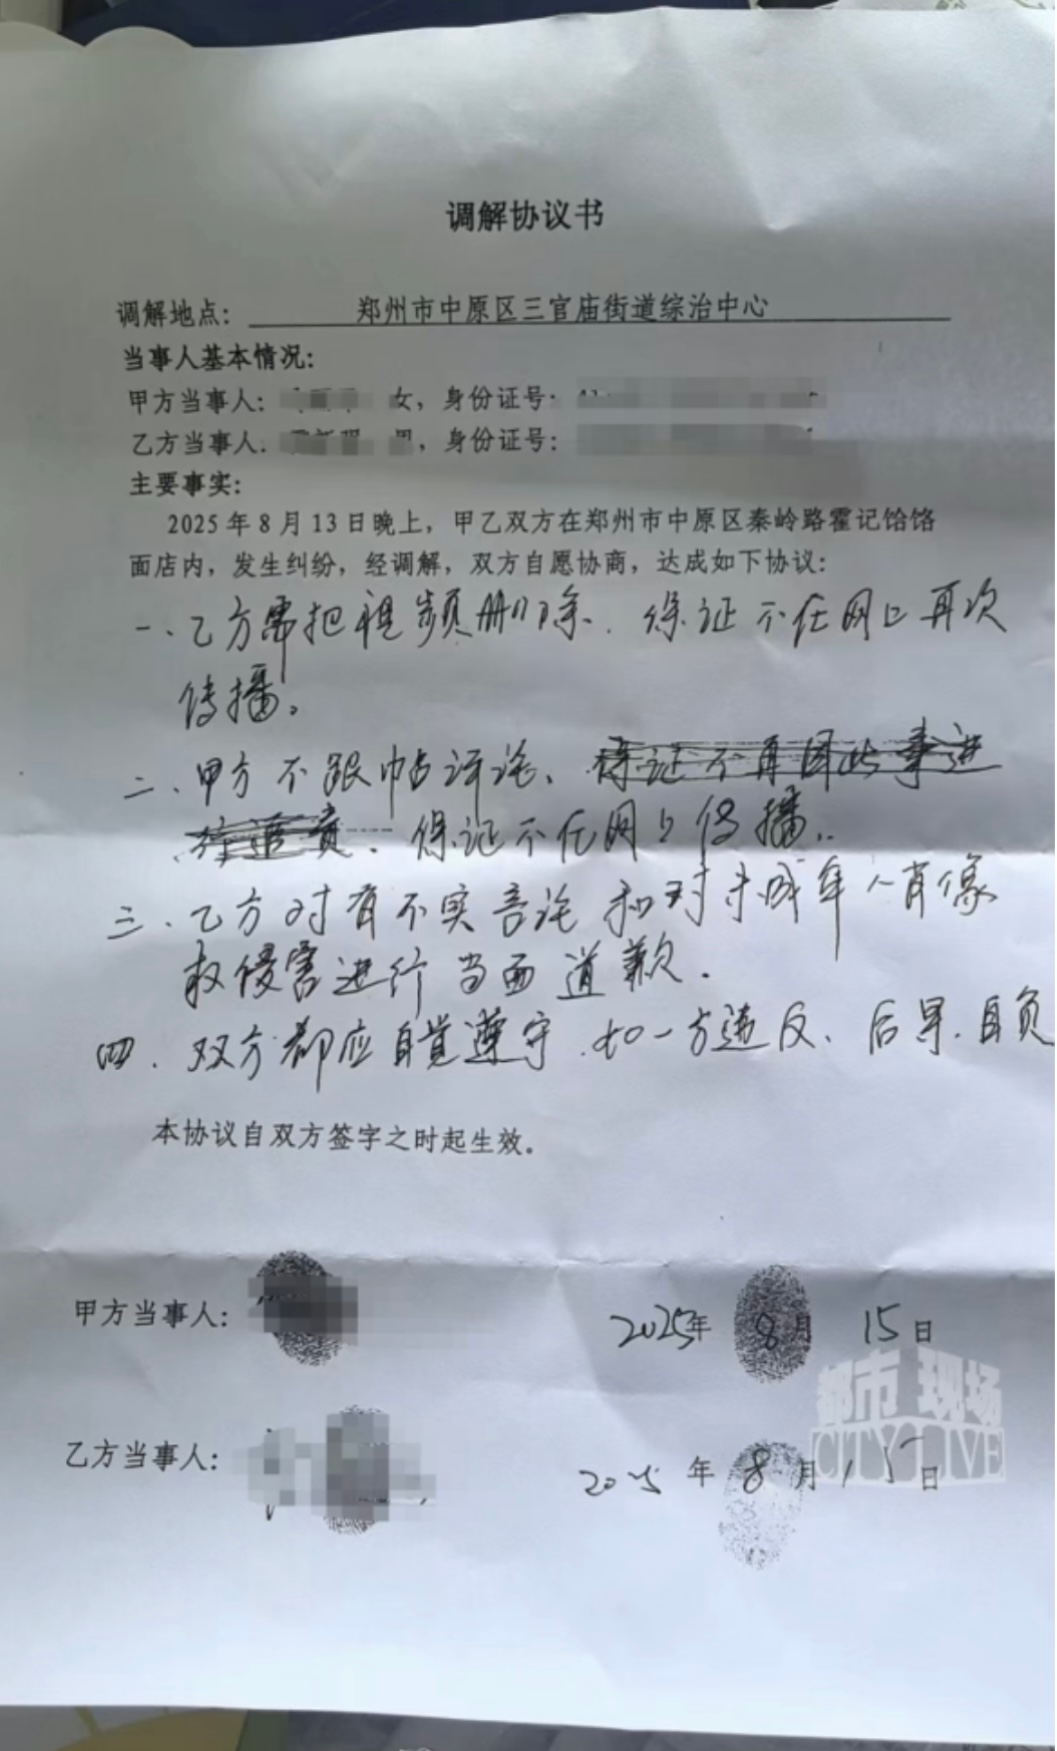 调解协议书
调解地点：郑州市中原区三官庙街道综治中心
当事人基本情况：
甲方当事人： 女，身份证号：
乙方当事人： 男，身份证号：
主要事实：
2025年8月13日晚上，甲乙双方在郑州市中原区秦岭路霍记饸饹
面店内，发生纠纷，经调解，双方自愿协商，达成如下协议：
一、乙方需把视频删除、保证不在网上再次
传播。
二、甲方不跟帖评论、保证不再因此事进
行追责、保证不在网上传播。
三、乙方对有不实言论和对未成年人肖像
权侵害进行当面道歉.
四、双方都应自觉遵守.如一方违反、后果自负
本协议自双方签字之时起生效。
甲方当事人： 2025年8月15日
乙方当事人： 2025年8月15日
都市现场
CITYLIVE